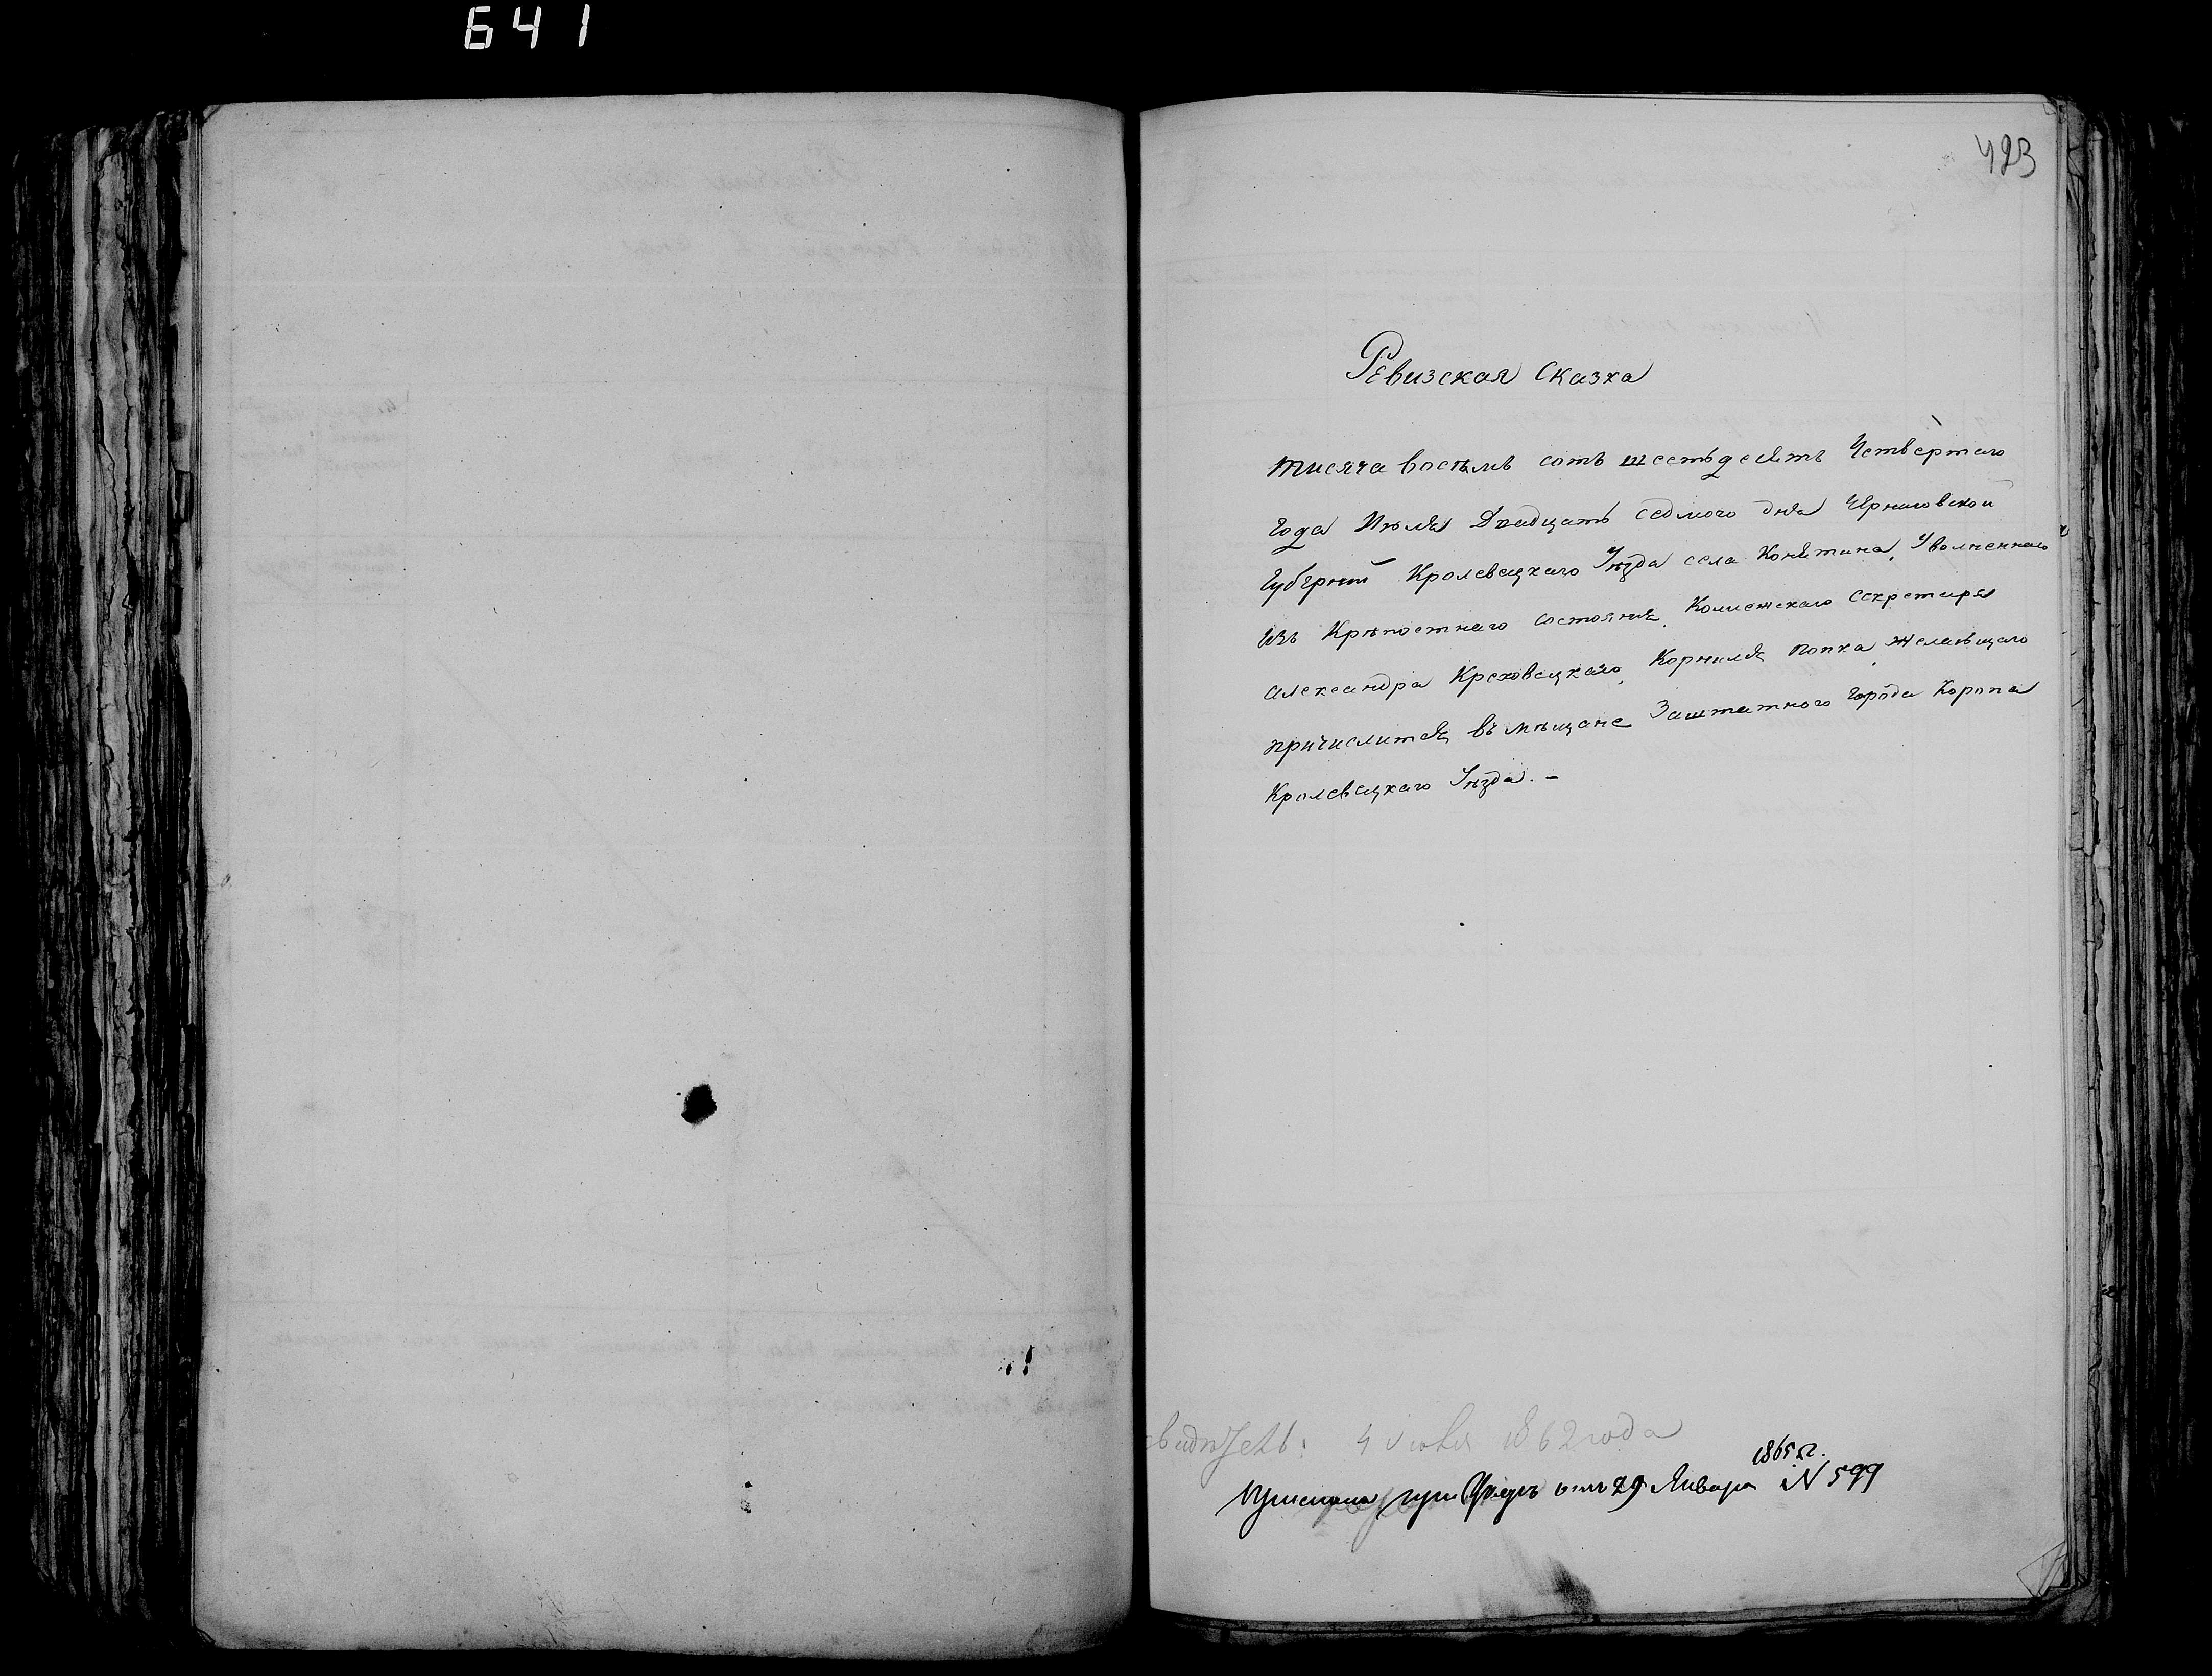 641
423
Ревизская Сказка
тысяча восѣмъ сотъ шестьдесятъ Четвёртаго
Года Июля Двадцать седмого дня Черниговской
Губернии Кролевецкаго Уѣзда села Конятина, Уволненнаго
изъ Крѣпостнаго состояния, Колежскаго Секретаря
Александра Креховецкаго, Корнилия Попка, желающаго
причислится въ мѣщане Заштатного Города Коропа
Кролевецкаго Уѣзда. -
4 июля 1862 года
1865 г.
при отъ 29 Января N 599